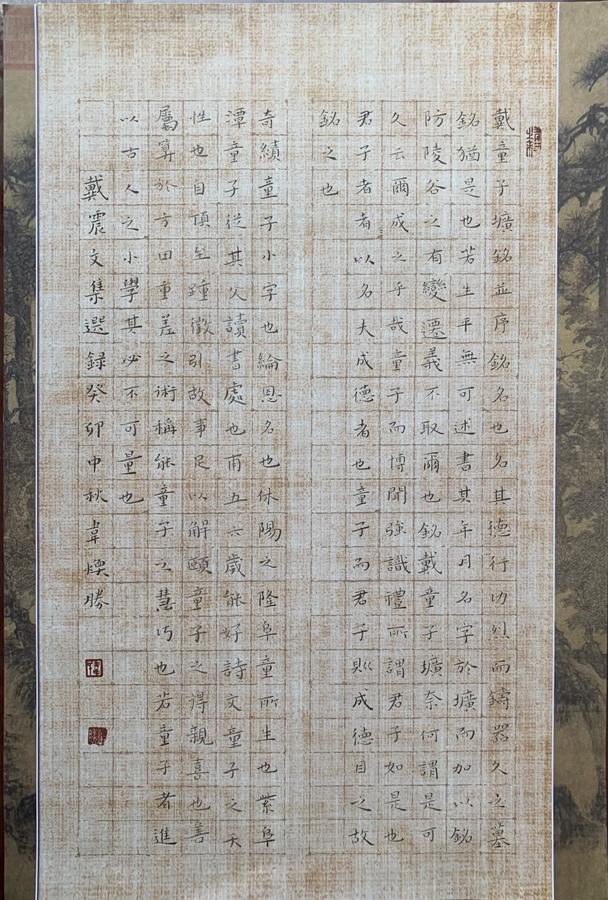 戴童子壙銘並序銘名也名其德行功烈而鑄器久之墓
銘猶是也若生平無可述書其年月名字於壙而加以銘
防陵谷之有變遷義不取爾也銘戴童子壙奈何謂是可
久云爾成之乎哉童子而博聞強識禮所謂君子如是也
君子者者以名大成德者也童子而君子則成德目之故
銘之也
奇績童子小字也綸恩名也休陽之隆阜童所生也紫阜
潭童子從其父讀書處也甫五六歲能好詩文童子之天
性也自頂至踵徵引故事足以解頤童子之得親喜也善
屬算於方田重差之術稱能童子之慧巧也若童子者進
以古人之小學其必不可量也
戴震文集選録癸卯中秋韋煥勝